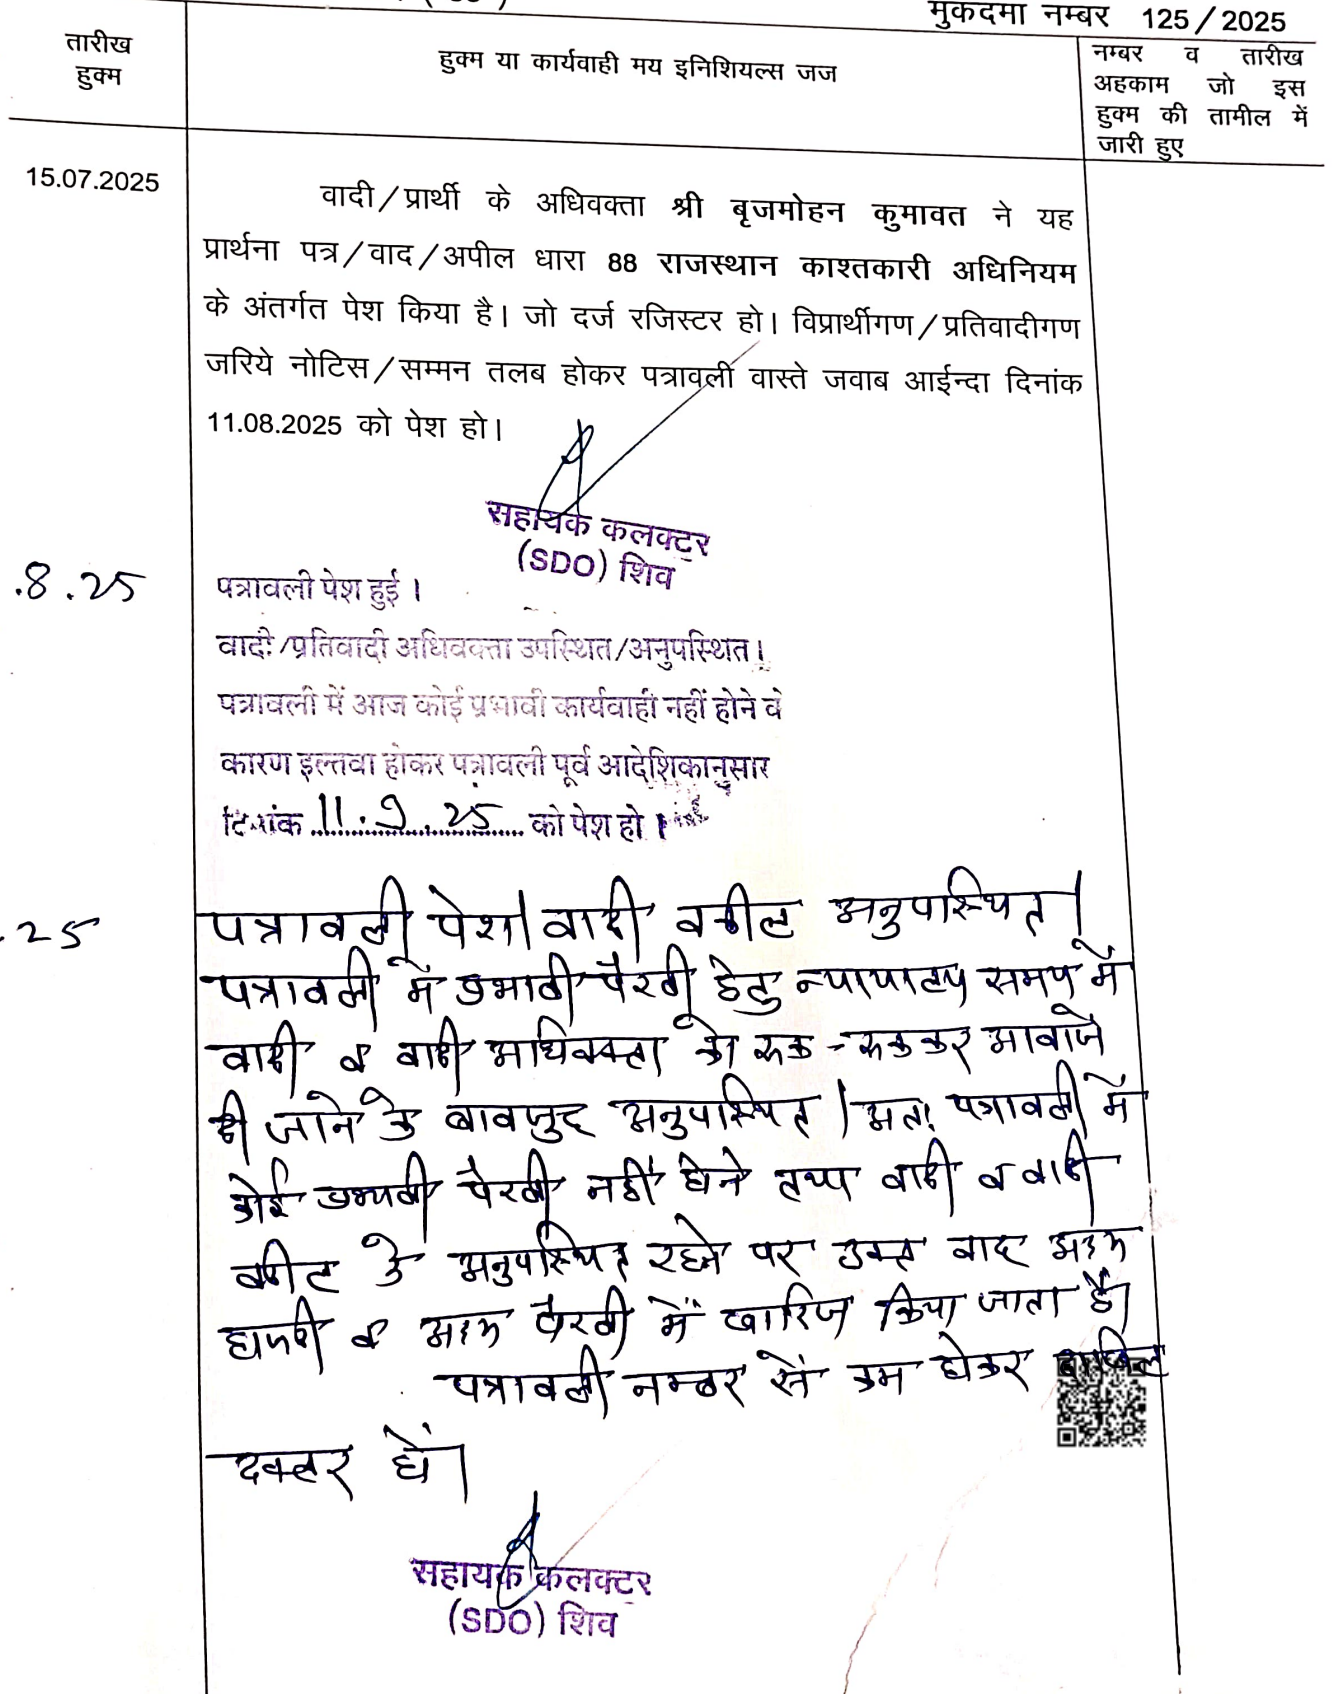 मुकदमा नम्बर 125/2025
तारीख
हुक्म
हुक्म या कार्यवाही मय इनिशियल्स जज
नम्बर व तारीख
अहकाम जो इस
हुक्म की तामील में
जारी हुए
15.07.2025
वादी/प्रार्थी के अधिवक्ता श्री बृजमोहन कुमावत ने यह
प्रार्थना पत्र/वाद/अपील धारा 88 राजस्थान काश्तकारी अधिनियम
के अंतर्गत पेश किया है। जो दर्ज रजिस्टर हो। विप्रार्थीगण/प्रतिवादीगण
जरिये नोटिस/सम्मन तलब होकर पत्रावली वास्ते जवाब आईन्दा दिनांक
11.08.2025 को पेश हो।
सहायक कलक्टर
(SDO) शिव
.8.25
पत्रावली पेश हुई।
वादी/प्रतिवादी अधिवक्ता उपस्थित/अनुपस्थित।
पत्रावली में आज कोई प्रभावी कार्यवाही नहीं होने के
कारण इल्तवा होकर पत्रावली पूर्व आदेशिकानुसार
दिनांक 11.9.25 को पेश हो।
.25
पत्रावली पेश। वादी वकील अनुपस्थित।
पत्रावली में प्रभावी पैरवी हेतु न्यायालय समय में
वादी व वादी अधिवक्ता को रूक-रूककर आवाजे
दी जाने के बावजुद अनुपस्थित। अतः पत्रावली में
कोई प्रभावी पैरवी नहीं होने तथा वादी व वादी
वकील के अनुपस्थित रहने पर उक्त वाद अदम
हाजरी व अदम पैरवी में खारिज किया जाता है।
पत्रावली नम्बर से कम होकर दाखिल
दफ्तर हों।
सहायक कलक्टर
(SDO) शिव